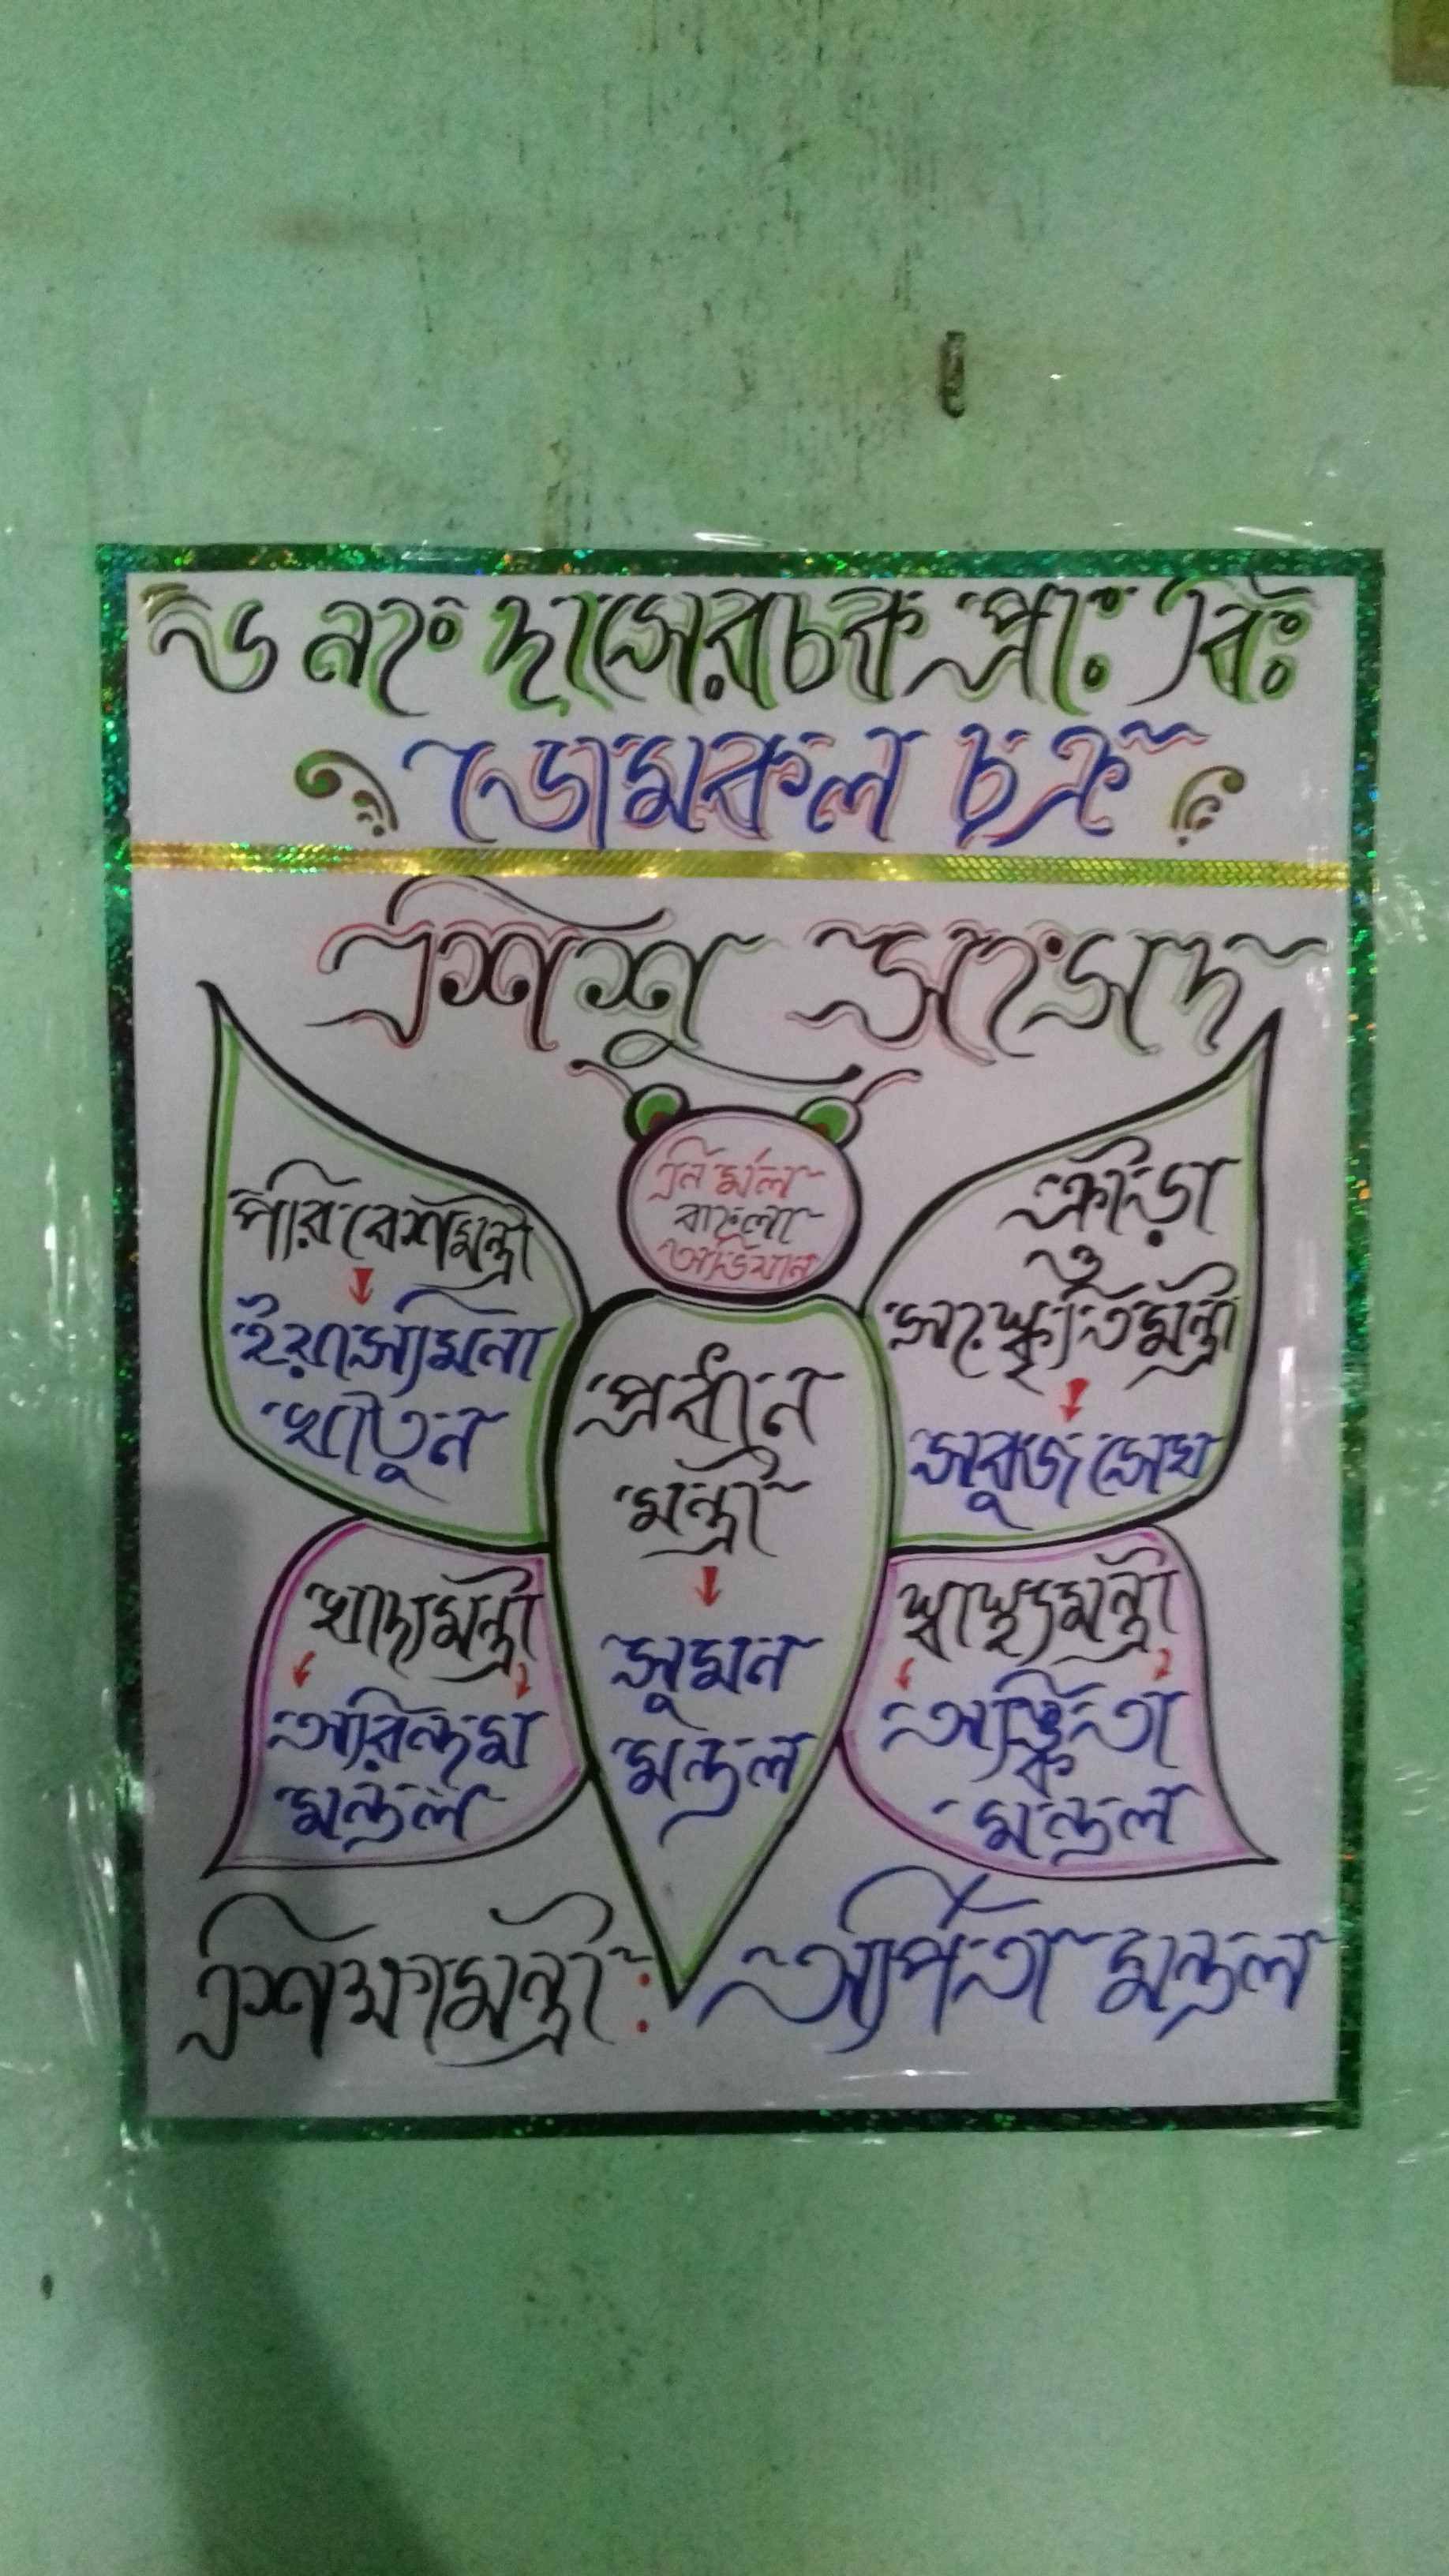 ৬ নং দাসেরচক প্রাঃ বিঃ
ডোমকল চক্র
শিশু সংসদ
নির্মল
বাংলা
অভিযান
পরিবেশমন্ত্রী
ইয়াসমিনা
খাতুন
ক্রীড়া
ও
সংস্কৃতিমন্ত্রী
সবুজ সেখ
প্রধান
মন্ত্রী
সুমন
মন্ডল
খাদ্যমন্ত্রী
অরিন্দম
মন্ডল
স্বাস্থ্যমন্ত্রী
অঙ্কিতা
মন্ডল
শিক্ষামন্ত্রী: অর্পিতা মন্ডল